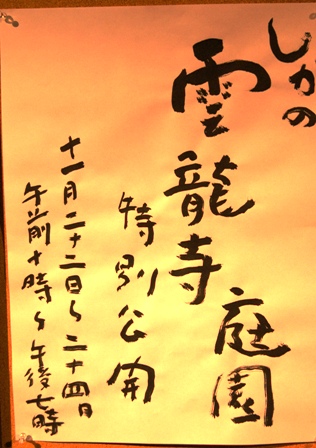 しかの
雲龍寺
庭園
特別公開
十一月二十二日~二十四日
午前十時~午後七時